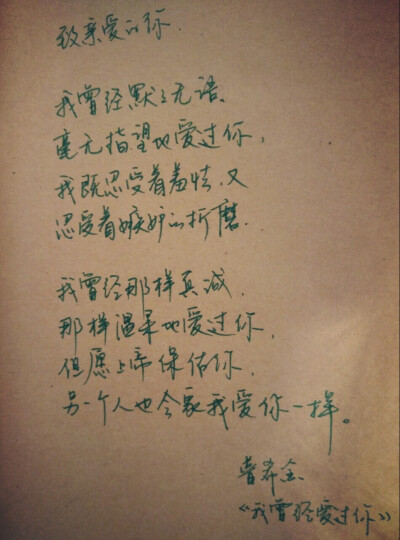 致亲爱的你.
我曾经默默无语、
毫无指望地爱过你,
我既忍受着羞怯,又
忍受着嫉妒的折磨.
我曾经那样真诚,
那样温柔地爱过你,
但愿上帝保佑你,
另一个人也会象我爱你一样。
普希金
《我曾经爱过你》